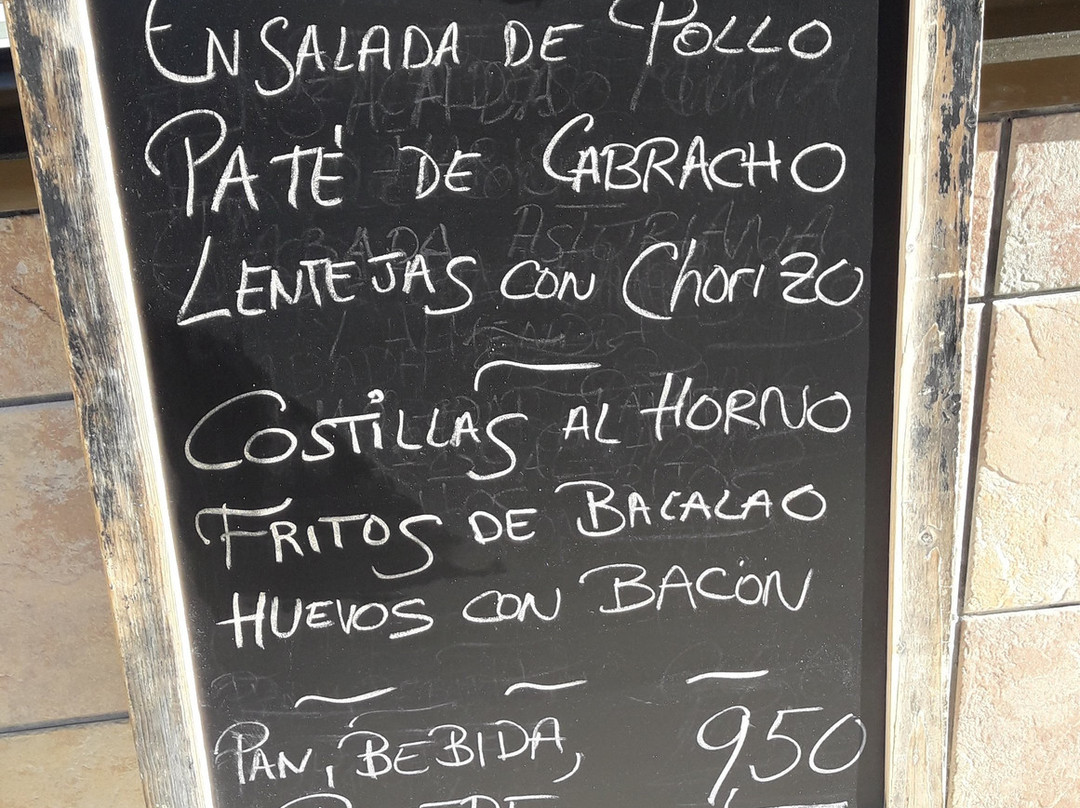 ENSALADA DE POLLO
PATÉ DE CABRACHO
LENTEJAS CON ChoriZO
COSTiLLAS AL HORNO
FRITOS DE BACALAO
HUEVOS CON BACON
PAN, BEBIDA, 9,50